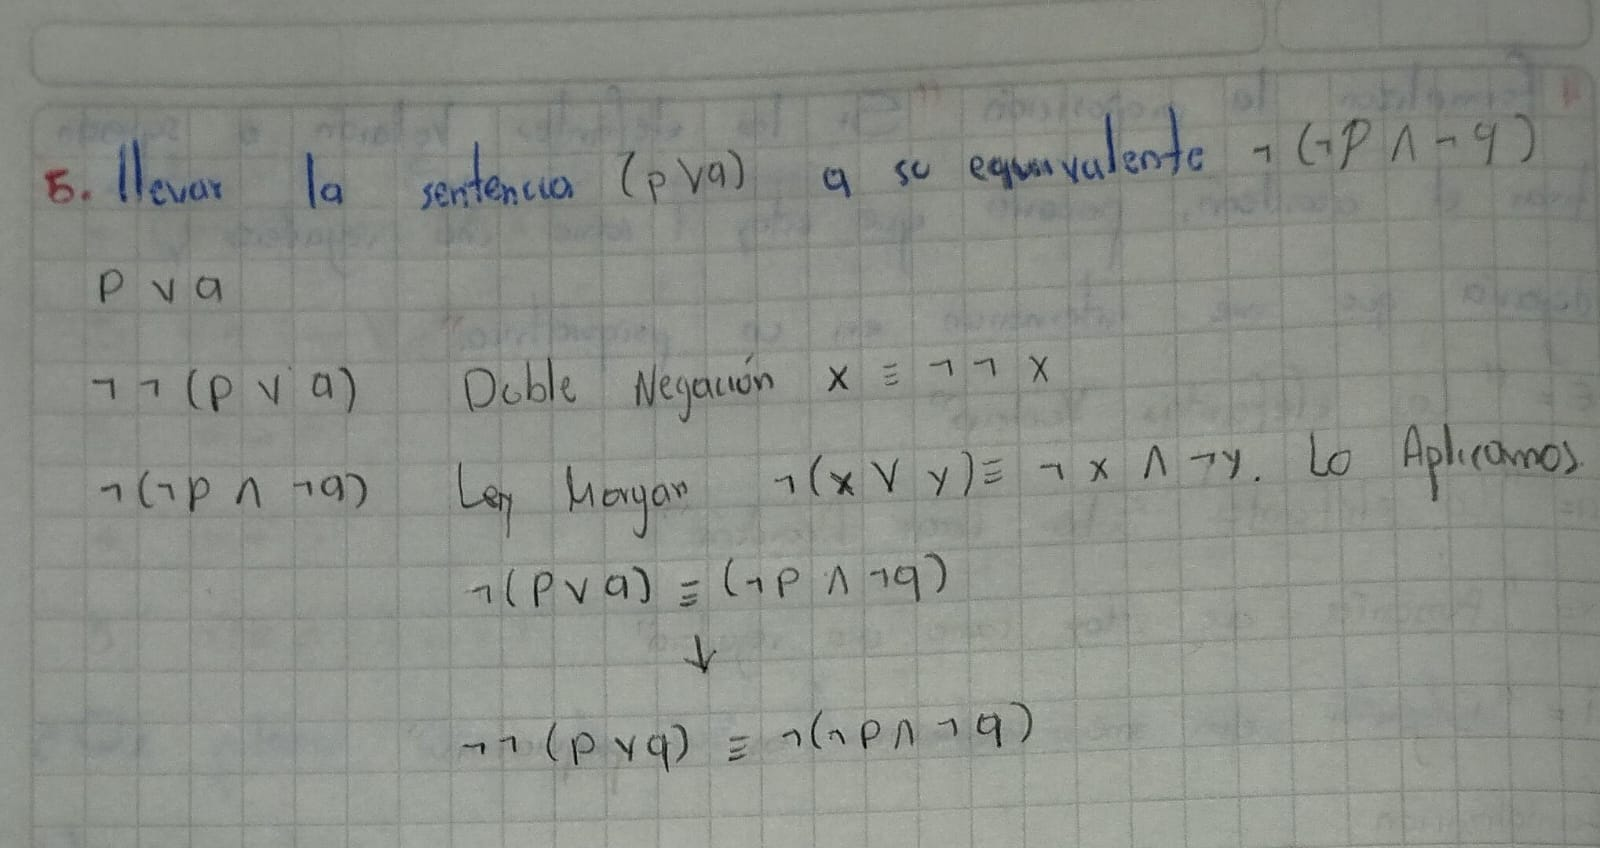 5. llevar la sentencia (p ∨ q) a su equivalente ¬(¬p ∧ ¬q)
p ∨ q
¬¬(p ∨ q) Doble Negación x ≡ ¬¬x
¬(¬p ∧ ¬q) Ley Morgan ¬(x ∨ y) ≡ ¬x ∧ ¬y. Lo Aplicamos
¬(p ∨ q) ≡ (¬p ∧ ¬q)
↓
¬¬(p ∨ q) ≡ ¬(¬p ∧ ¬q)